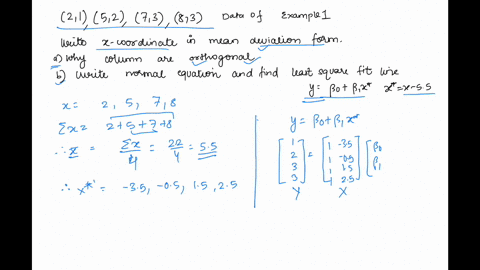 (2,1), (5,2), (7,3), (8,3) Data of Example 1
Write x-coordinate in mean deviation form.
a) Why column are orthogonal
b) Write normal equation and find least square fit line
y = β0 + β1x* x* = x-5.5
x = 2, 5, 7, 8
Σx = 2+5+7+8
∴ x̄ = Σx/4 = 22/4 = 5.5
∴ x* = -3.5, -0.5, 1.5, 2.5
y = β0 + β1x*
[1 2 3 3] = [1 -3.5 1 -0.5 1 1.5 1 2.5] [β0 β1
Y X